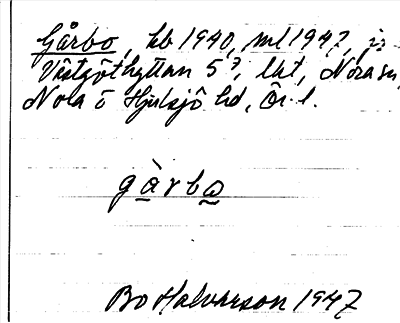 Gårbo, kb 1940, ml 1947, js
Västgöthyttan 5³, lht, Nora sn,
Nora o Hjulsjö hd, Ör. l.
gàrbo
Bo Halvarson 1947